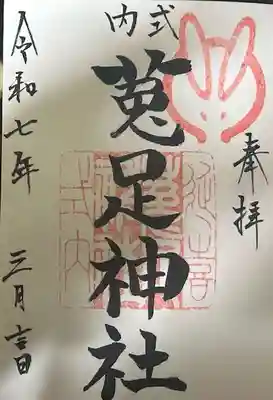 奉拝
式内
菟足神社
令和七年三月吉日